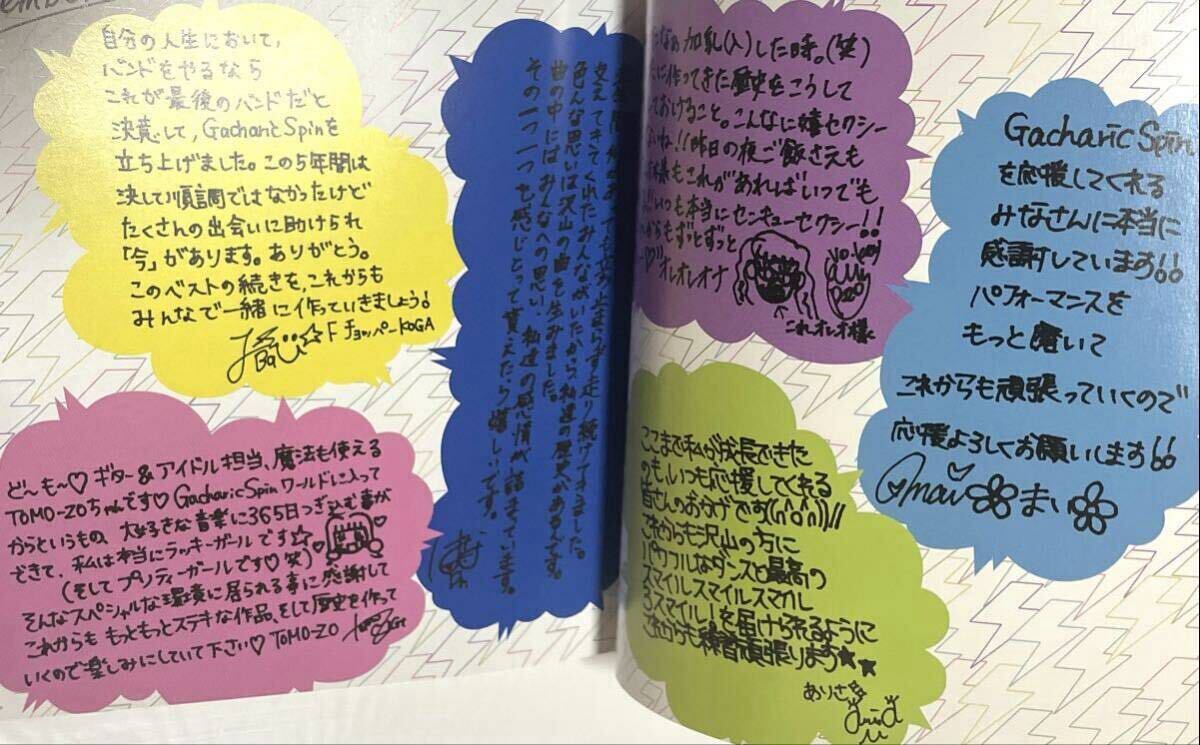 自分の人生において、
バンドをやるなら
これが最後のバンドだと
決意して、Gacharic Spinを
立ち上げました。この5年間は
決して順調ではなかったけど
たくさんの出会いに助けられ
「今」があります。ありがとう。
このベストの続きを、これからも
みんなで一緒に作っていきましょう!
F チョッパー KOGA
ど〜も〜♡ ギター&アイドル担当、魔法も使える
TOMO-ZOちゃんです♡ Gacharic Spin ワールドに入って
からというもの、大好きな音楽に365日つぎ込む事が
できて、私は本当にラッキーガールです☆
(そしてプリティーガールです♡笑)
そんなスペシャルな環境に居られる事に感謝して
これからももっともっとステキな作品、そして歴史を作って
いくので楽しみにしていて下さい♡ TOMO-ZO
止まらず走り続けてきました。
支えてきてくれたみんながいたから私達の歴史があるんです。
色んな思いは沢山の曲を生みました。
曲の中にはみんなへの思い、私達の感情が詰まっています。
その一つ一つを感じとって貰えたら嬉しいです。
加乳(入)した時。(笑)
に作ってきた歴史をこうして
ておけること。こんなに嬉セクシー
いね!!昨日の夜ご飯さえも
もこれがあればいつでも
!!いつも本当にセンキューセクシー!!
からもずっとずっと
オレオレオナ
これオレオ様
ここまで私が成長できた
のも、いつも応援してくれる
皆さんのおかげです((∩^o^∩))//
これからも沢山の方に
パワフルなダンスと最高の
スマイルスマイルスマイル
3スマイル!を届けられるように
これからも練習頑張ります★★
ありさ
Gacharic Spin
を応援してくれる
みなさんに本当に
感謝しています!!
パフォーマンスを
もっと磨いて
これからも頑張っていくので
応援よろしくお願いします!!
mai まい